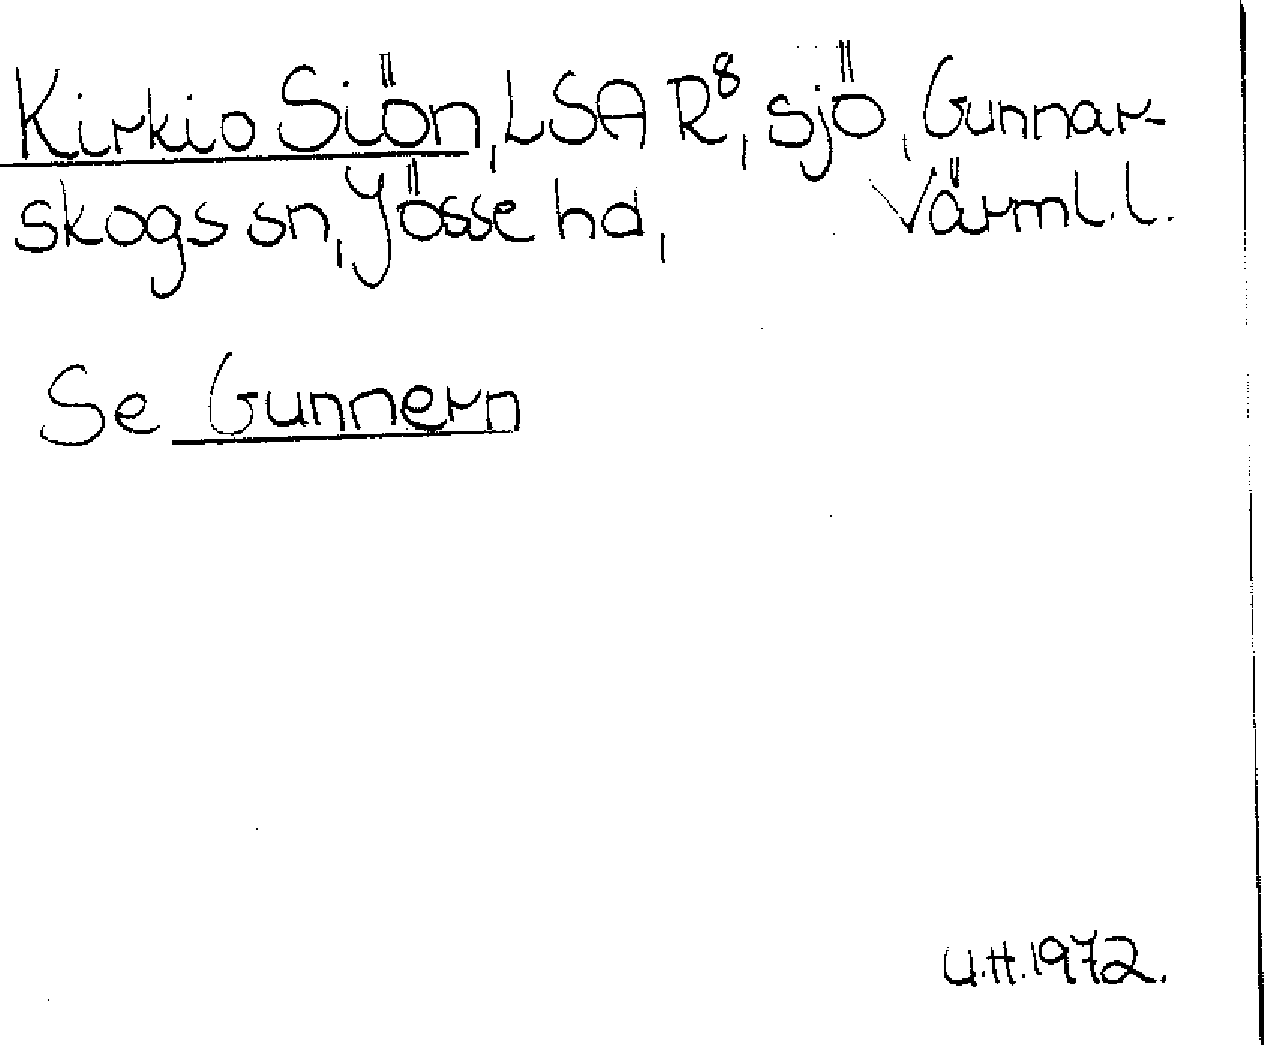 Kirkio Siön, LSA R⁸, sjö, Gunnar-
skogs sn, Jösse hd, Värml. l.
Se Gunnern
U.H. 1972.